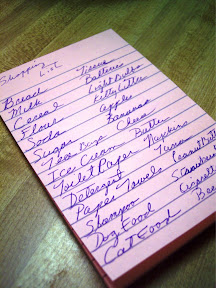 Shopping
List
Bread Tissue
Milk Batteries
Cereal Light Bulbs
Flour Kitty Litter
Soda Apples
Sugar Bananas
Tea Bags Cheese
Ice Cream Butter
Toilet Paper Napkins
Detergent
Paper Towels Peanut Butter
Shampoo
Dog Food
Cat Food